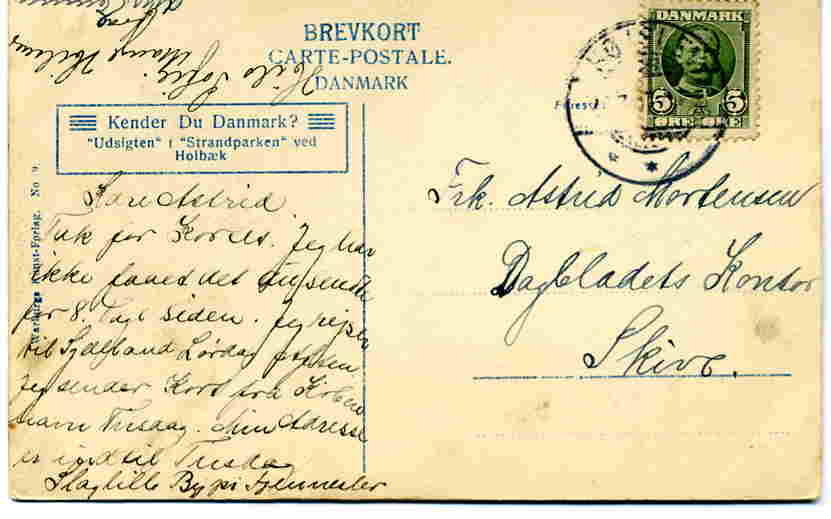 BREVKORT
CARTE-POSTALE.
DANMARK
DANMARK
5 5
ØRE ØRE
Kender Du Danmark?
"Udsigten" i "Strandparken" ved
Holbæk
Warburgs Kunst-Forlag. No 9.
Kære Astrid
Tak for Kortet. Jeg har
ikke faaet det
før 8. Dage siden. Jeg rejser
til Sjælland Lørdag
Jeg sender Kort fra Køben
havn Tirsdag. Min Adresse
er indtil Tirsdag
Slaglille By pr Fjenneslev
Hils Sofie
Frk. Astrid Mortensen
Dagbladets Kontor
Skive.